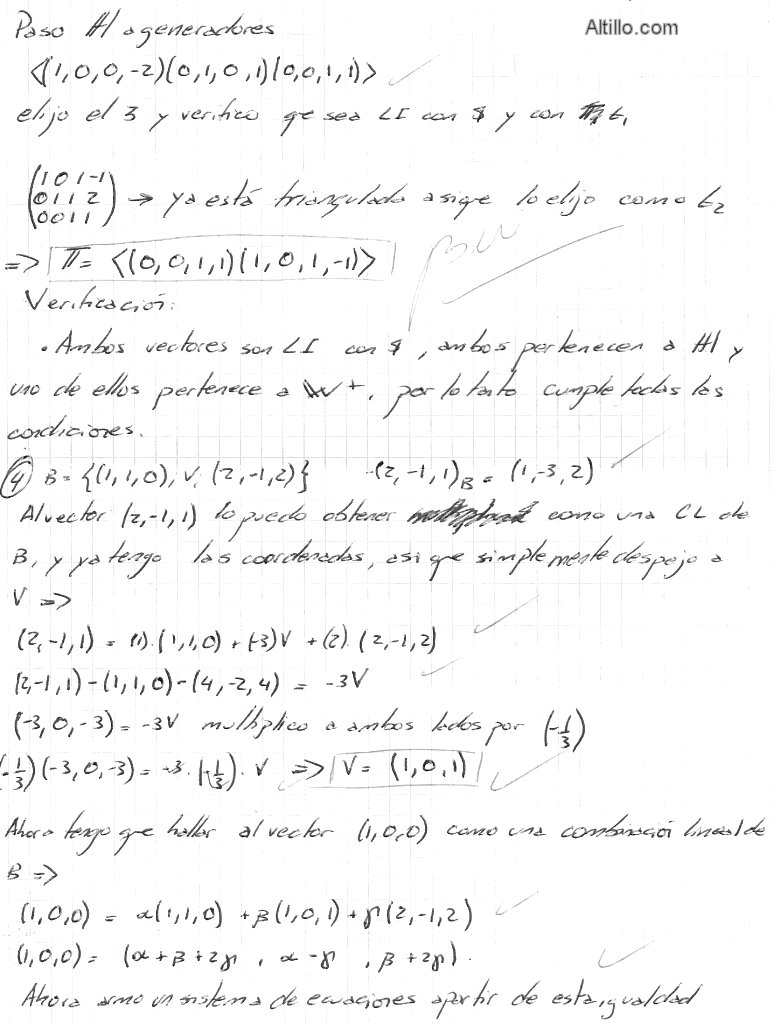 Altillo.com
Paso ℍ a generadores
<(1,0,0,-2)(0,1,0,1)(0,0,1,1)>
elijo el 3 y verifico qe sea LI con $ y con t₁
(1 0 1 -1
0 1 1 2
0 0 1 1) → ya está triangulada asique lo elijo como t₂
=> π = <(0,0,1,1)(1,0,1,-1)>
Verificación:
• Ambos vectores son LI con $, ambos pertenecen a ℍ y
uno de ellos pertenece a W⊥, por lo tanto cumple todas las
condiciones.
④ B = {(1,1,0), V, (2,-1,2)} (2,-1,1)B = (1,-3,2)
Al vector (2,-1,1) lo puedo obtener como una CL de
B, y ya tengo las coordenadas, asi qe simplemente despejo a
V =>
(2,-1,1) = (1).(1,1,0) + (-3)V + (2).(2,-1,2)
(2,-1,1) - (1,1,0) - (4,-2,4) = -3V
(-3,0,-3) = -3V multiplico a ambos lados por (-1/3)
(-1/3)(-3,0,-3) = -3.(-1/3).V => V = (1,0,1)
Ahora tengo qe hallar al vector (1,0,0) como una combinación lineal de
B =>
(1,0,0) = α(1,1,0) + β(1,0,1) + γ(2,-1,2)
(1,0,0) = (α+β+2γ, α-γ, β+2γ).
Ahora armo un sistema de ecuaciones apartir de esta igualdad